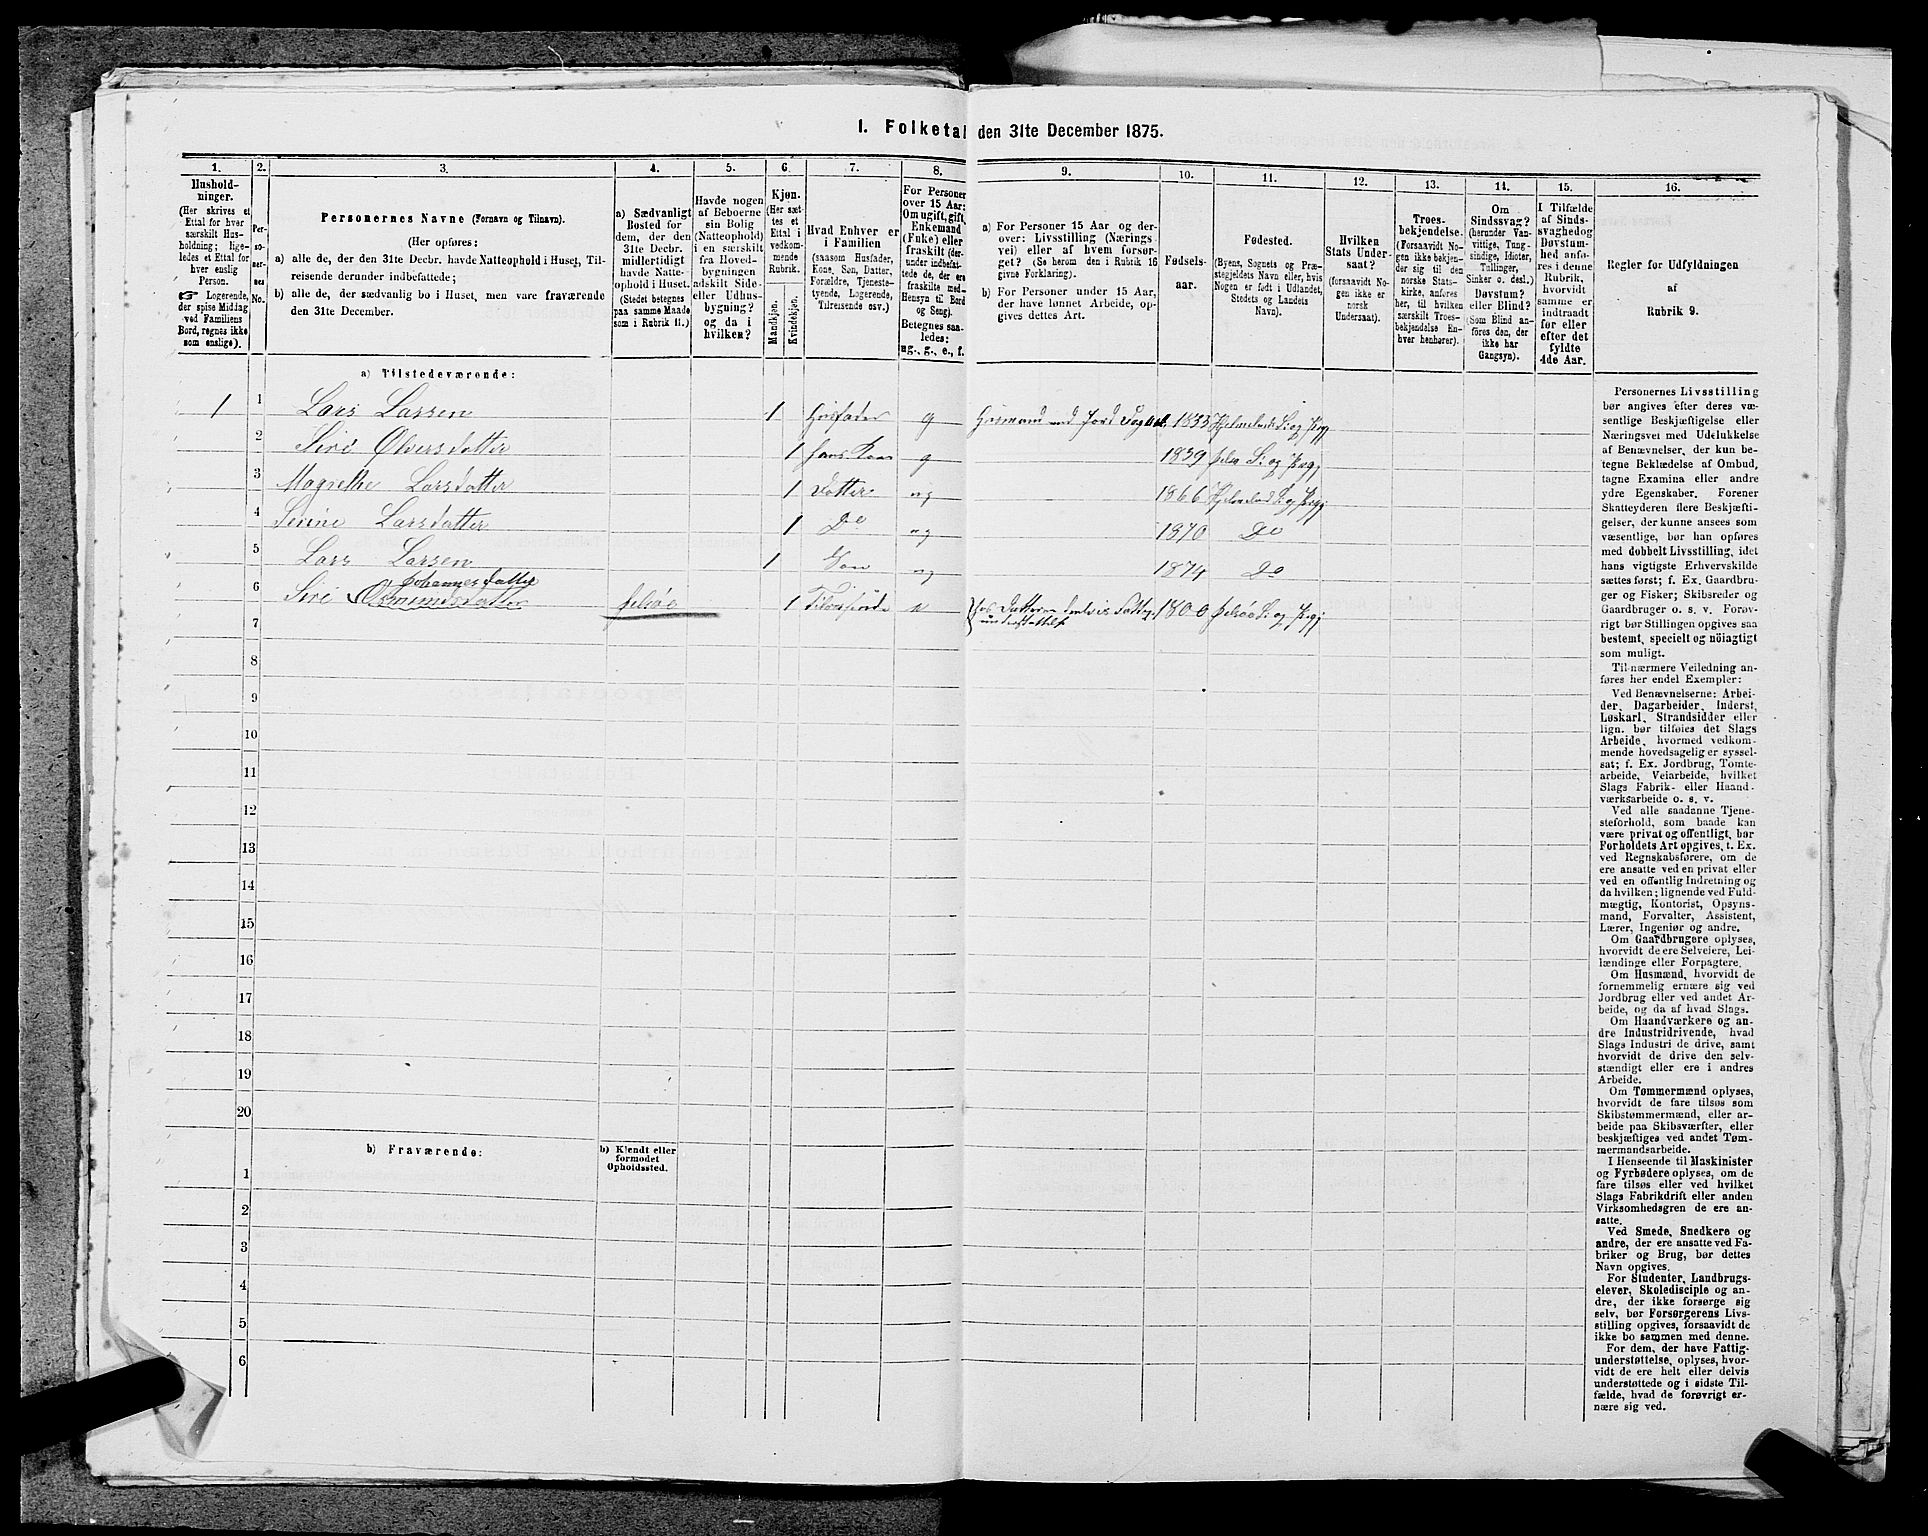 1. Folketal den 31te December 1875.
1. 2. 3. 4. 5. 6. 7. 8. 9. 10. 11. 12. 13. 14. 15. 16.
Hushold-
ninger.
(Her skrives et
Ettal for hver
særskilt Hus-
holdning; lige-
ledes et Ettal for
hver enslig
Person.
☞ Logerende,
der spise Middag
ved Familiens
Bord, regnes ikke
som enslige).
Per-
so-
ner-
nes
No.
Personernes Navne (Fornavn og Tilnavn).
(Her opføres:
a) alle de, der den 31te Decbr. havde Natteophold i Huset, Til-
reisende derunder indbefattede;
b) alle de, der sædvanlig bo i Huset, men vare fraværende
den 31te December.
a) Sædvanligt
Bosted for
dem, der den
31te Decbr.
midlertidigt
havde Natte-
ophold i Huset.
(Stedet betegnes
paa samme Maade
som i Rubrik 11.)
Havde nogen
af Beboerne
sin Bolig
(Natteophold)
i en særskilt
fra Hoved-
bygningen
adskilt Side-
eller Udhus-
bygning?
og da i
hvilken?
Kjøn.
(Her sæt-
tes et
Ettal i
vedkom-
mende
Rubrik.
Mandkjøn.
Kvindekjøn.
Hvad Enhver er
i Familien
(saasom Husfader,
Kone, Søn, Datter,
Forældre, Tjeneste-
tyende, Logerende,
Tilreisende osv.)
For Personer
over 15 Aar:
Om ugift, gift,
Enkemand
(Enke) eller
fraskilt (der-
under indbefat-
tede de, der ere
fraskilte med-
Hensyn til Bord
og Seng).
Betegnes saa-
ledes:
ug., g., e., f.
a) For Personer 15 Aar og der-
over: Livsstilling (Nærings
vei) eller af hvem forsør-
get? (Se herom den i Rubrik 16
givne Forklaring).
b) For Personer under 15 Aar,
der have lønnet Arbeide, op-
gives dettes Art.
Fødsels-
aar.
Fødested.
(Byens, Sognets og Præ-
stegjeldets Navn eller, hvis
Nogen er født i Udlandet,
Stedets og Landets
Navn).
Hvilken
Stats Under-
saat?
(forsaavidt No-
gen ikke er
norsk
Undersaat).
Troes-
bekjendelse.
(Forsaavidt No-
gen ikke bekjen-
der sig til den
norske Stats-
kirke, anføres
her, til hvilken
særskilt Troes-
bekjendelse En-
hver henhører).
Om
Sindssvag?
(herunder Van-
vittige, Tung-
sindige, Idioter,
Tullinger,
Sinker o. desl.)
Døvstum?
eller Blind?
(Som Blind an-
føres den, der
ikke har
Gangsyn).
I Tilfælde
af Sinds-
svaghed og
Døvstum-
hed anfø-
res i denne
Rubrik,
hvorvidt
samme er
indtraadt
før eller
efter det
fyldte
4de Aar.
Regler for Udfyldningen
af
Rubrik 9.
a) Tilstedeværende:
1 1 Lars Larsen 1 Husfader g Husmand med Jord 1833
2 Siri Olversdatter 1 hans Kone g 1839
3 Magrethe Larsdatter 1 Datter ug 1866
4 Serine Larsdatter 1 Do ug 1870 Do
5 Lars Larsen 1 Søn ug 1874 Do
Johannesdatter
6 Siri Osmundsdatter 1 1800
understøttelse
7
8
9
10
11
12
13
14
15
16
17
18
19
20
b) Fraværende:
b) Kjendt eller
formodet
Opholdssted.
1
2
3
4
5
6
Personernes Livsstilling
bør angives efter deres væ-
sentlige Beskjæftigelse eller
Næringsvei med Udelukkelse
af Benævnelser, der kun be-
tegne Beklædelse af Ombud,
tagne Examina eller andre
ydre Egenskaber. Forener
Skatteyderen flere Beskjæfti-
gelser, der kunne ansees som
væsentlige, bør han opføres
med dobbelt Livsstilling, idet
hans vigtigste Erhvervskilde
sættes først; f. Ex. Gaardbru-
ger og Fisker; Skibsreder og
Gaardbruger o. s. v. Forøv-
rigt bør Stillingen opgives saa
bestemt, specielt og nøiagtigt
som muligt.
Til nærmere Veiledning an-
føres her endel Exempler:
Ved Benævnelserne: Arbei-
der, Dagarbeider, Inderst,
Løskarl, Strandsidder eller
lign. bør tilføies det Slags
Arbeide, hvormed vedkom-
mende hovedsagelig er syssel-
sat; f. Ex. Jordbrug, Tomte-
arbeide, Veiarbeide, hvilket
Slags Fabrik- eller Haand-
værksarbeide o. s. v.
Ved alle saadanne Tjene-
steforhold, som baade kan
være privat og offentligt, bør
Forholdets Art opgives, t. Ex.
ved Regnskabsførere, om de
ere ansatte ved en privat eller
ved en offentlig Indretning og
da hvilken; lignende ved Fuld-
mægtig, Kontorist, Opsyns-
mand, Forvalter, Assistent,
Lærer, Ingeniør og andre.
Om Gaardbrugere oplyses,
hvorvidt de ere Selveiere, Lei-
lændinge eller Forpagtere.
Om Husmænd, hvorvidt de
fornemmelig ernære sig ved
Jordbrug eller ved andet Ar-
beide, og da af hvad Slags.
Om Haandværkere og an-
dre Industridrivende, hvad
Slags Industri de drive, samt
hvorvidt de drive den selv-
stændigt eller ere i andres
Arbeide.
Om Tømmermænd oplyses,
hvorvidt de fare tilsøs som
Skibstømmermænd, eller ar-
beide paa Skibsværfter, eller
beskjæftiges ved andet Tøm-
mermandsarbeide.
I Henseende til Maskinister
og Fyrbødere oplyses, om de
fare tilsøs eller ved hvilket
Slags Fabrikdrift eller anden
Virksomhedsgren de ere an-
satte.
Ved Smede, Snedkere og
andre, der ere ansatte ved Fa-
briker og Brug, bør dettes
Navn opgives.
For Studenter, Landbrugs-
elever, Skoledisciple og an-
dre, der ikke forsørge sig
selv, bør Forsørgerens Livs-
stilling opgives, forsaavidt de
ikke bo sammen med denne.
For dem, der have Fattig-
understøttelse, oplyses, hvor-
vidt de ere helt eller delvis
understøttede og i sidste Til-
fælde, hvad de forøvrigt er-
nære sig ved.